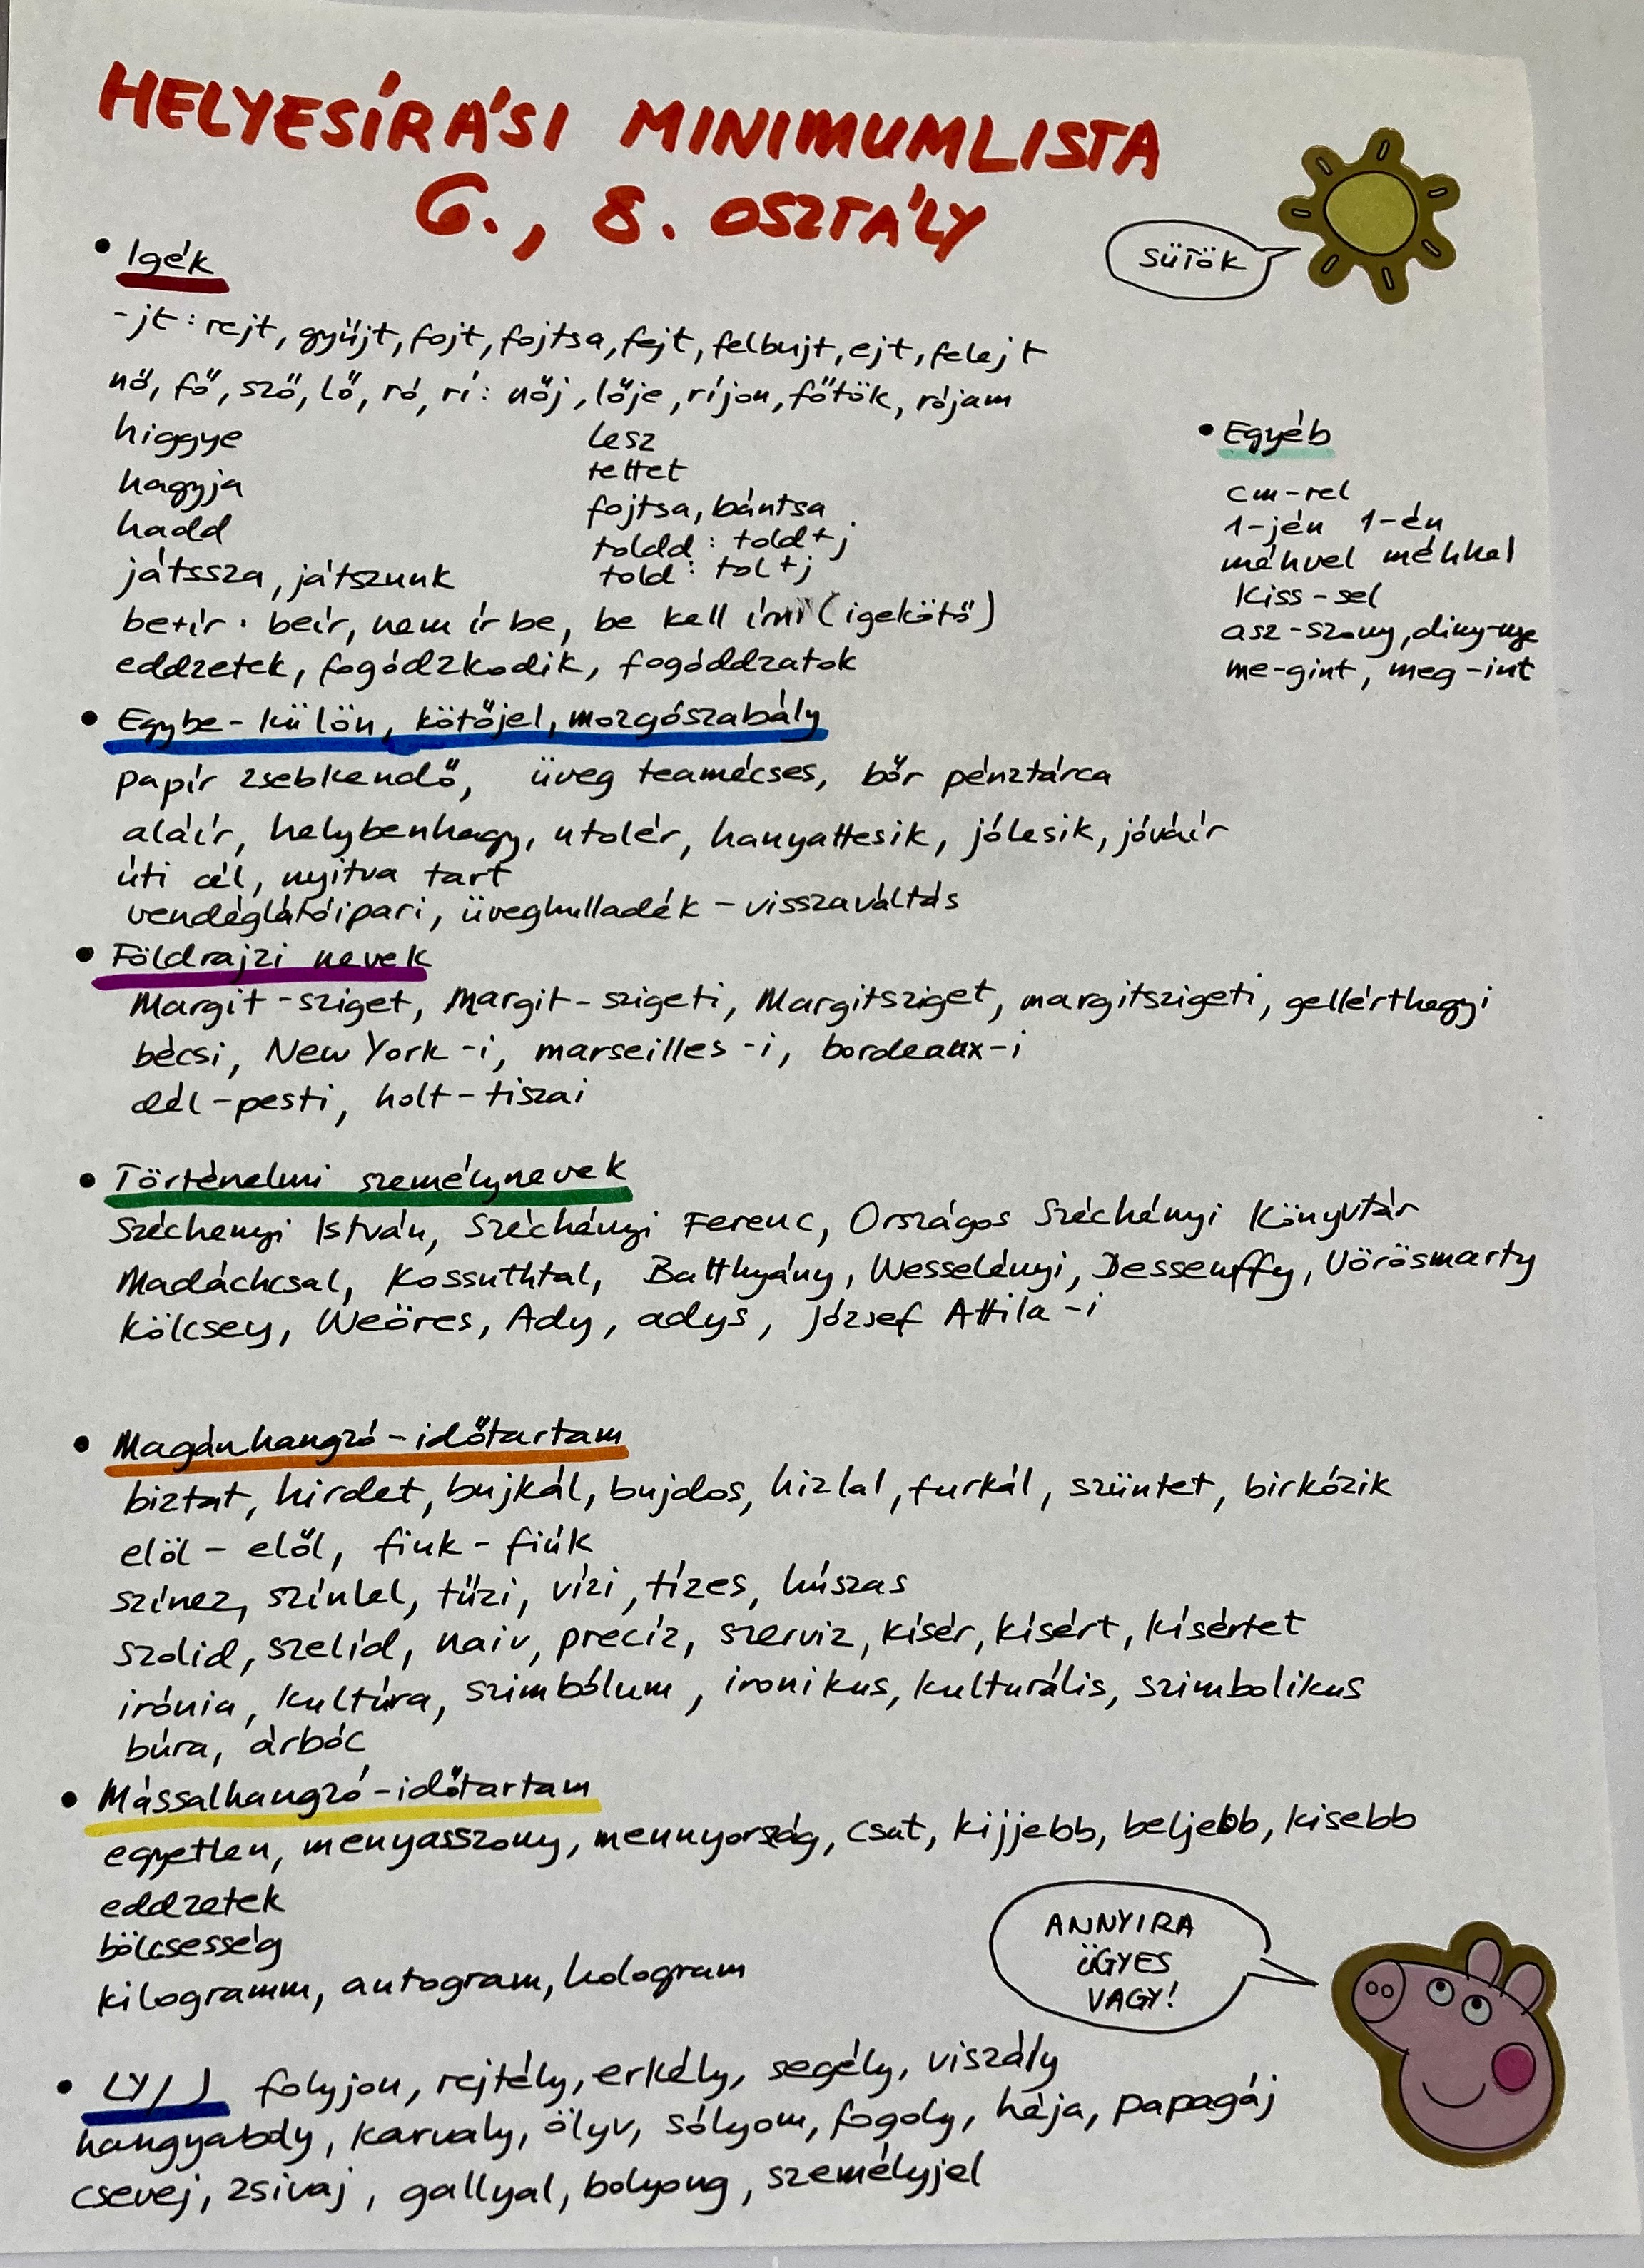 HELYESÍRÁSI MINIMUMLISTA
6., 8. OSZTÁLY
SÜTÖK
• Igék
-jt: rejt, gyűjt, fojt, fojtsa, fejt, felbujt, ejt, felejt
nő, fő, sző, lő, ró, rí: nőj, lője, ríjon, főtök, rójam
higgye
hagyja
hadd
játssza, játszunk
lesz
tettet
fojtsa, bántsa
toldd: told+j
told: tol+j
be+ír: beír, nem ír be, be kell írni (igekötő)
eddzetek, fogódzkodik, fogóddzatok
• Egyéb
cm-rel
1-jén 1-én
méhvel méhhel
Kiss-sel
asz-szony, diny-nye
me-gint, meg-int
• Egybe-külön, kötőjel, mozgószabály
papír zsebkendő, üveg teamécses, bőr pénztárca
aláír, helybenhagy, utolér, hanyattesik, jólesik, jóváír
úti cél, nyitva tart
vendéglátóipari, üveghulladék-visszaváltás
• Földrajzi nevek
Margit-sziget, Margit-szigeti, Margitsziget, margitszigeti, gellérthegyi
bécsi, New York-i, marseilles-i, bordeaux-i
dél-pesti, holt-tiszai
• Történelmi személynevek
Széchenyi István, Széchényi Ferenc, Országos Széchényi Könyvtár
Madáchcsal, Kossuthtal, Batthyány, Wesselényi, Dessewffy, Vörösmarty
Kölcsey, Weöres, Ady, adys, József Attila-i
• Magánhangzó-időtartam
biztat, hirdet, bujkál, bujdos, hizlal, furkál, szüntet, birkózik
elöl - elől, fiuk - fiúk
színez, színlel, tűzi, vízi, tízes, húszas
szolid, szelíd, naiv, precíz, szerviz, kísér, kísért, kísértet
irónia, kultúra, szimbólum, ironikus, kulturális, szimbolikus
búra, árbóc
• Mássalhangzó-időtartam
egyetlen, menyasszony, mennyország, csat, kijjebb, beljebb, kisebb
eddzetek
bölcsesség
kilogramm, autogram, hologram
ANNYIRA
ÜGYES
VAGY!
• LY/J folyjon, rejtély, erkély, segély, viszály
hangyaboly, karvaly, ölyv, sólyom, fogoly, héja, papagáj
csevej, zsivaj, gallyal, bolyong, személyjel